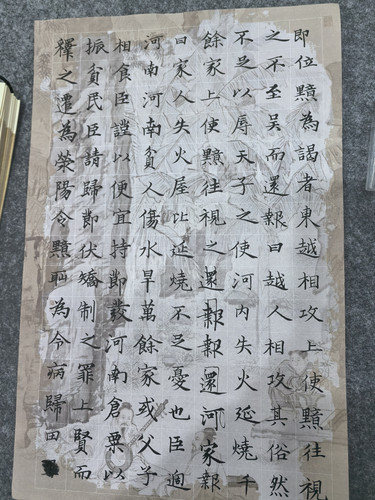 即位黯為謁者東越相攻上使黯往視
之不至吳而還報曰越人相攻其俗然
不足以辱天子之使河內失火延燒千
餘家上使黯往視之還報報還河家報
曰家人失火屋比延燒不足憂也臣過
河南河南貧人傷水旱萬餘家或父子
相食臣謹以便宜持節發河南倉粟以
振貧民臣請歸節伏矯制之罪上賢而
釋之遷為榮陽令黯恥為令病歸田